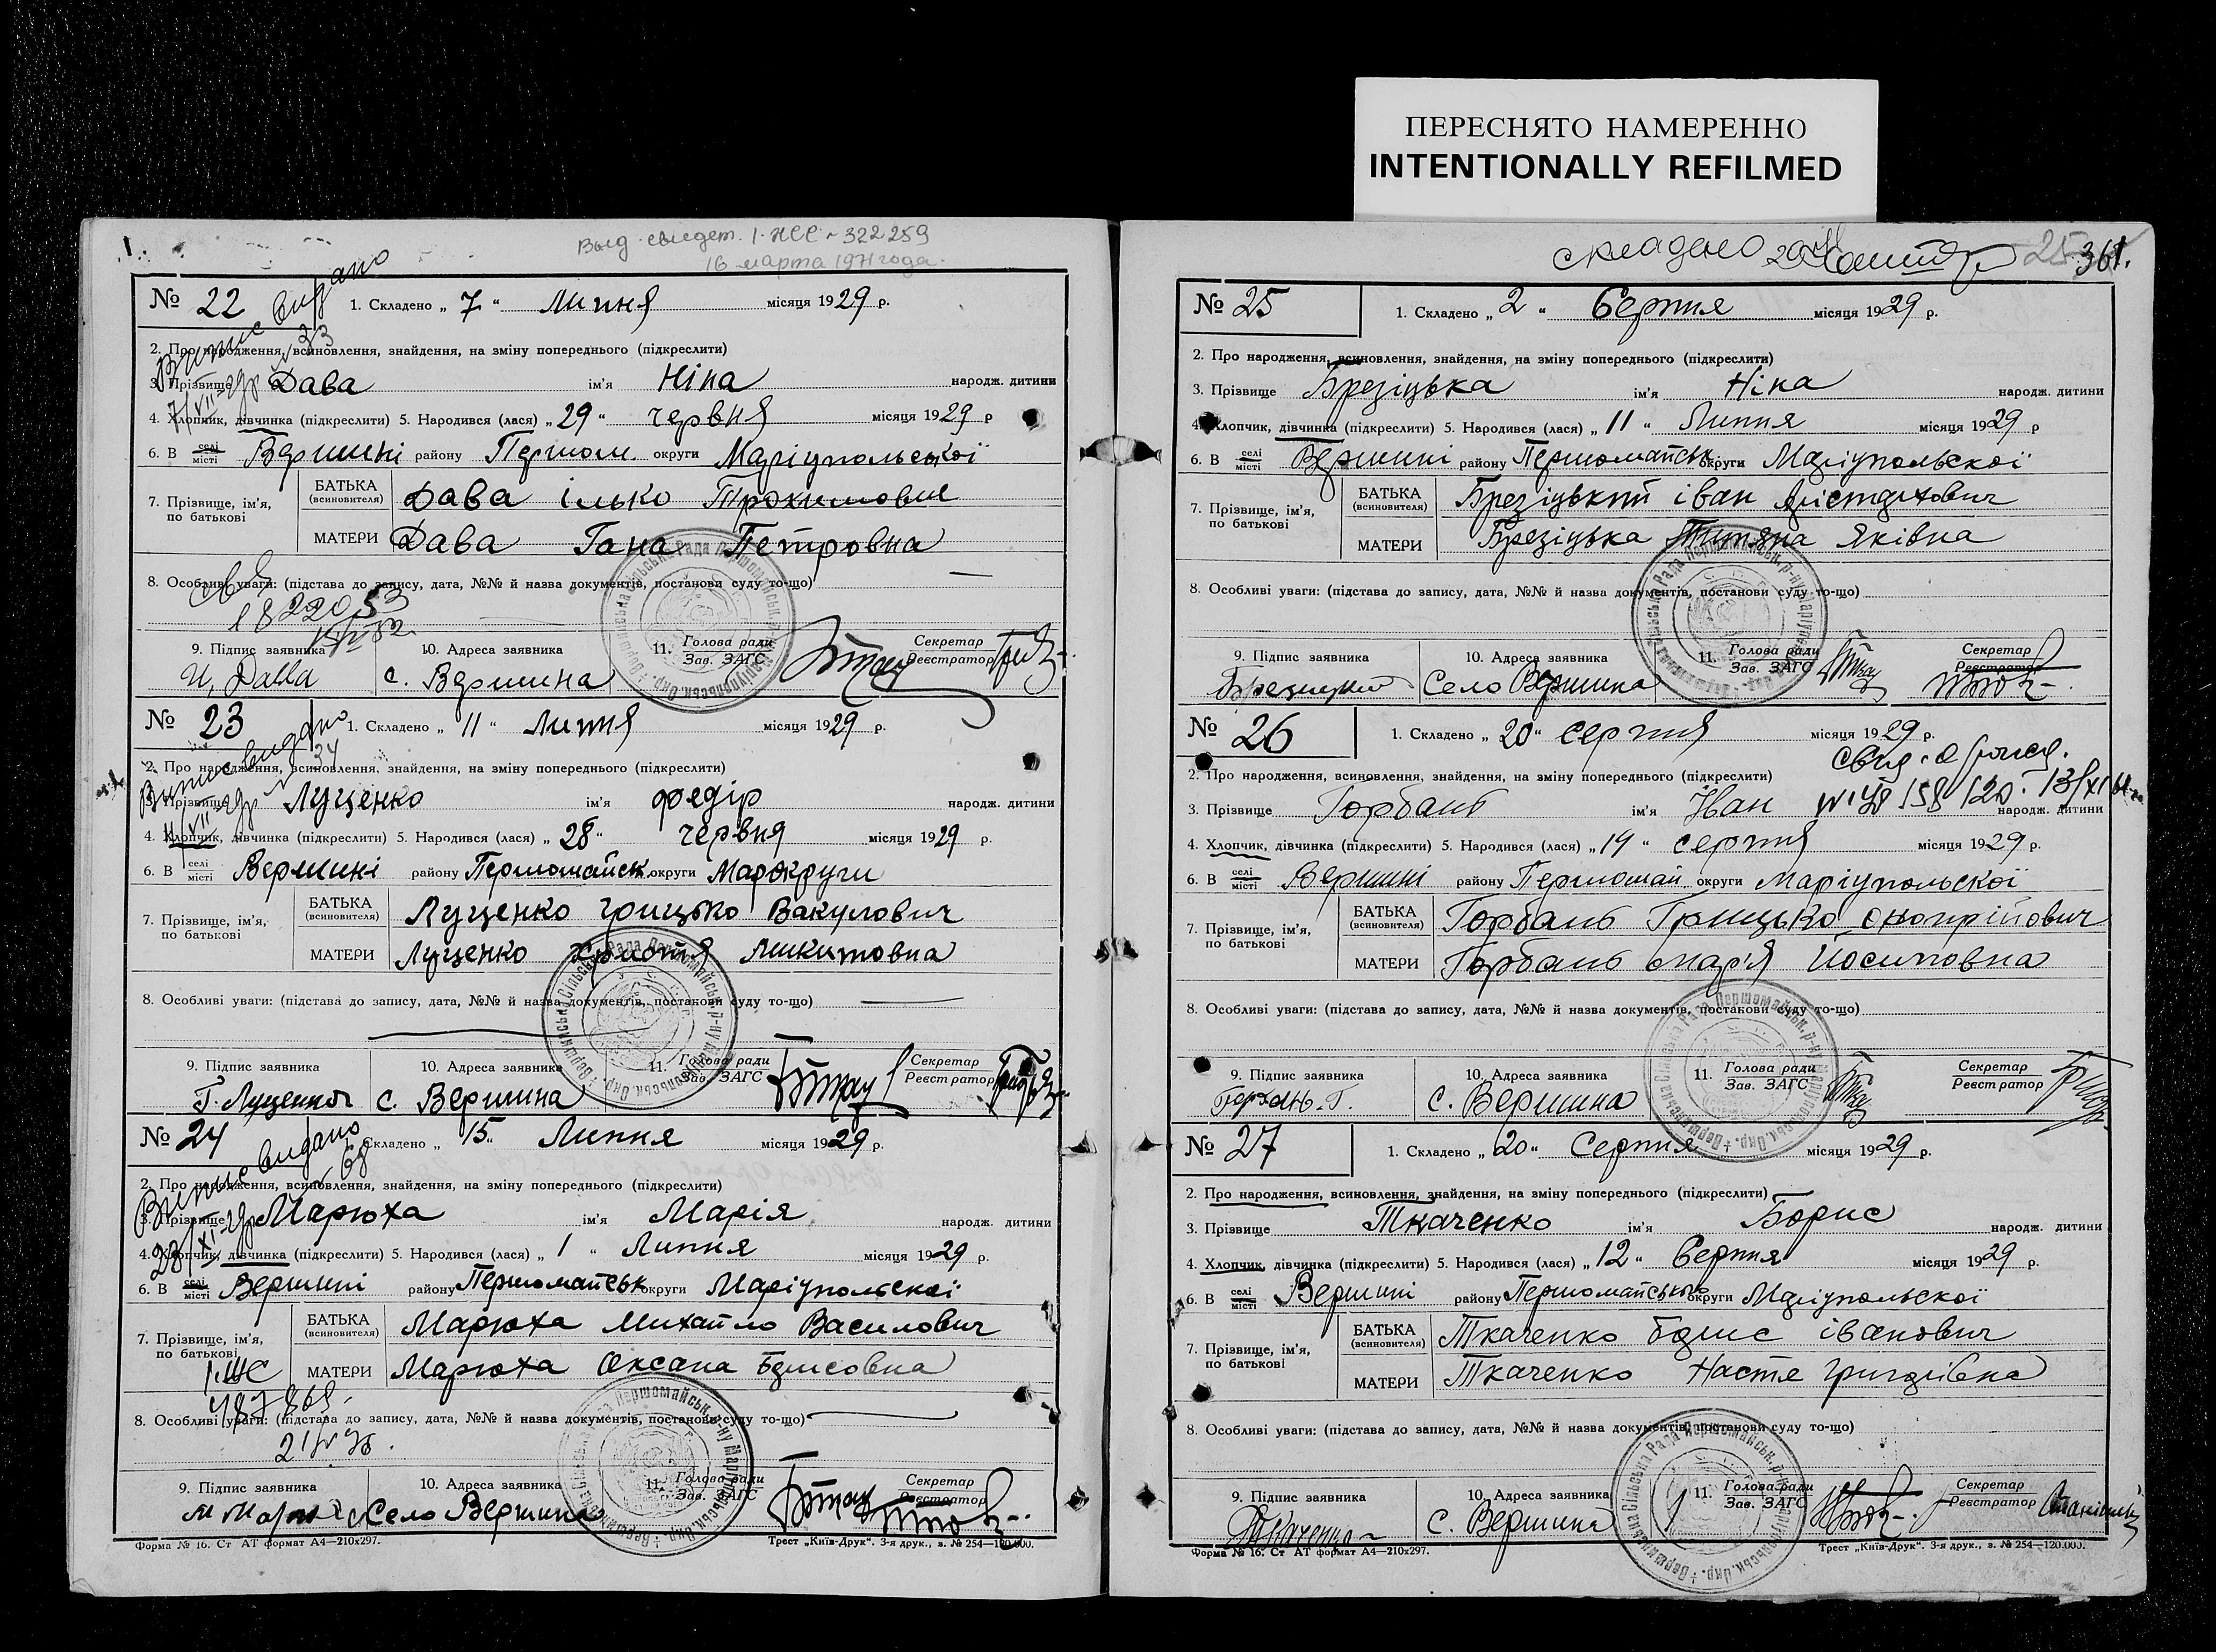 ПЕРЕСНЯТО НАМЕРЕННО
INTENTIONALLY REFILMED
Выд. свидет. 1-НСС № 322259
16 марта 1971 года.
№ 22
Випис видано
1. Складено „ 7 “ Липня місяця 1929 р.
2. Про народження, всиновлення, знайдення, на зміну попереднього (підкреслити)
3. Прізвище Дава ім'я Ніна народж. дитини
4. Хлопчик, дівчинка (підкреслити) 5. Народився (лася) „ 29 “ червня місяця 1929 р
6. В селі місті Вершині району Першом. округи Маріупольської
7. Прізвище, ім'я, по батькові
БАТЬКА (всиновителя) Дава Ілько Трохимович
МАТЕРИ Дава Гана Петровна
8. Особливі уваги: (підстава до запису, дата, №№ й назва документів, постанови суду то-що)
9. Підпис заявника
10. Адреса заявника с. Вершина
11. Голова ради Зав. ЗАГС
Секретар Реєстратор
№ 23
Випис видано 34
1. Складено „ 11 “ Липня місяця 1929 р.
2. Про народження, всиновлення, знайдення, на зміну попереднього (підкреслити)
3. Прізвище Луценко ім'я Федір народж. дитини
4. Хлопчик, дівчинка (підкреслити) 5. Народився (лася) „ 28 “ червня місяця 1929 р.
6. В селі місті Вершині району Першомайськ. округи Маріокруги
7. Прізвище, ім'я, по батькові
БАТЬКА (всиновителя) Луценко Грицько Вакулович
МАТЕРИ Луценко Христя Микитовна
8. Особливі уваги: (підстава до запису, дата, №№ й назва документів, постанови суду то-що)
9. Підпис заявника Г. Луценко
10. Адреса заявника с. Вершина
11. Голова ради Зав. ЗАГС
Секретар Реєстратор
№ 24
Випис видано
1. Складено „ 15 “ Липня місяця 1929 р.
2. Про народження, всиновлення, знайдення, на зміну попереднього (підкреслити)
3. Прізвище Марюха ім'я Марія народж. дитини
4. Хлопчик, дівчинка (підкреслити) 5. Народився (лася) „ 1 “ Липня місяця 1929 р.
6. В селі місті Вершині району Першомайськ округи Маріупольскої
7. Прізвище, ім'я, по батькові
БАТЬКА (всиновителя) Марюха Михайло Василович
МАТЕРИ Марюха Оксана Борисовна
8. Особливі уваги: (підстава до запису, дата, №№ й назва документів, постанови суду то-що)
9. Підпис заявника
10. Адреса заявника Село Вершина
11. Голова ради Зав. ЗАГС
Секретар Реєстратор
Форма № 16. Ст АТ формат А4—210х297.
Трест „Київ-Друк“. 3-я друк., з. № 254—120.000.
складено
361.
№ 25
1. Складено „ 2 “ Серпня місяця 1929 р.
2. Про народження, всиновлення, знайдення, на зміну попереднього (підкреслити)
3. Прізвище Брезіцька ім'я Ніна народж. дитини
4. Хлопчик, дівчинка (підкреслити) 5. Народився (лася) „ 11 “ Липня місяця 1929 р
6. В селі місті Вершині району Першомайськ округи Маріупольскої
7. Прізвище, ім'я, по батькові
БАТЬКА (всиновителя) Брезіцький Іван Арістархович
МАТЕРИ Брезіцька Титяна Яківна
8. Особливі уваги: (підстава до запису, дата, №№ й назва документів, постанови суду то-що)
9. Підпис заявника
10. Адреса заявника Село Вершина
11. Голова ради Зав. ЗАГС
Секретар Реєстратор
№ 26
1. Складено „ 20 “ серпня місяця 1929 р.
2. Про народження, всиновлення, знайдення, на зміну попереднього (підкреслити)
3. Прізвище Горбань ім'я Іван народж. дитини
4. Хлопчик, дівчинка (підкреслити) 5. Народився (лася) „ 14 “ серпня місяця 1929 р.
6. В селі місті Вершині району Першомай. округи Маріупольскої
7. Прізвище, ім'я, по батькові
БАТЬКА (всиновителя) Горбань Грицько Онопрійович
МАТЕРИ Горбань Мар'я Йосиповна
8. Особливі уваги: (підстава до запису, дата, №№ й назва документів, постанови суду то-що)
9. Підпис заявника Горбань. Г.
10. Адреса заявника с. Вершина
11. Голова ради Зав. ЗАГС
Секретар Реєстратор
№ 27
1. Складено „ 20 “ Серпня місяця 1929 р.
2. Про народження, всиновлення, знайдення, на зміну попереднього (підкреслити)
3. Прізвище Ткаченко ім'я Борис народж. дитини
4. Хлопчик, дівчинка (підкреслити) 5. Народився (лася) „ 12 “ Серпня місяця 1929 р.
6. В селі місті Вершині району Першомайсько округи Маріупольскої
7. Прізвище, ім'я, по батькові
БАТЬКА (всиновителя) Ткаченко Борис Іванович
МАТЕРИ Ткаченко Настя Григорівна
8. Особливі уваги: (підстава до запису, дата, №№ й назва документів, постанови суду то-що)
9. Підпис заявника
10. Адреса заявника с. Вершина
11. Голова ради Зав. ЗАГС
Секретар Реєстратор
Форма № 16. Ст АТ формат А4—210х297.
Трест „Київ-Друк“. 3-я друк., з. № 254—120.000.